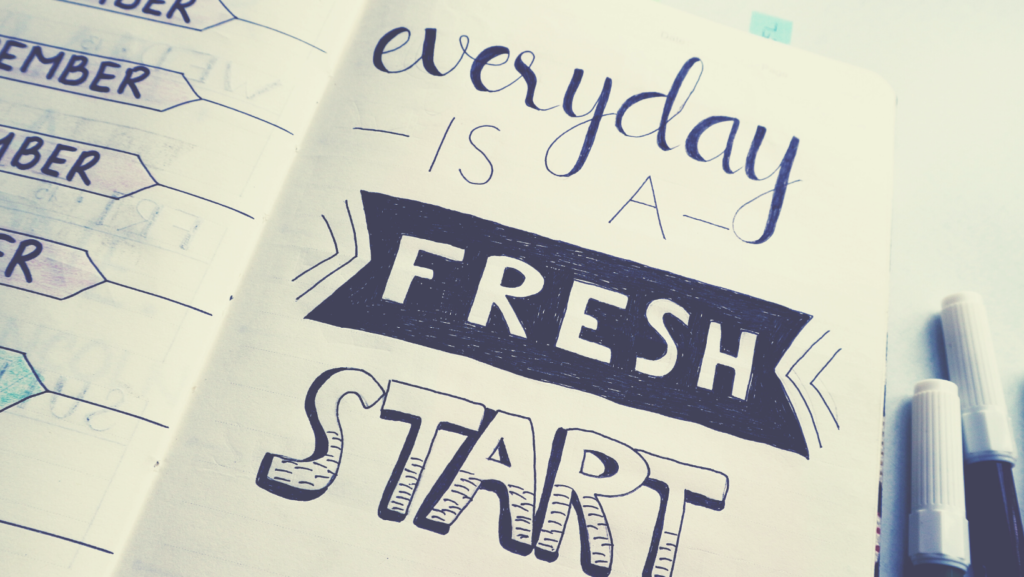 MBER
EMBER
MBER
ER
everyday
IS A
FRESH
START